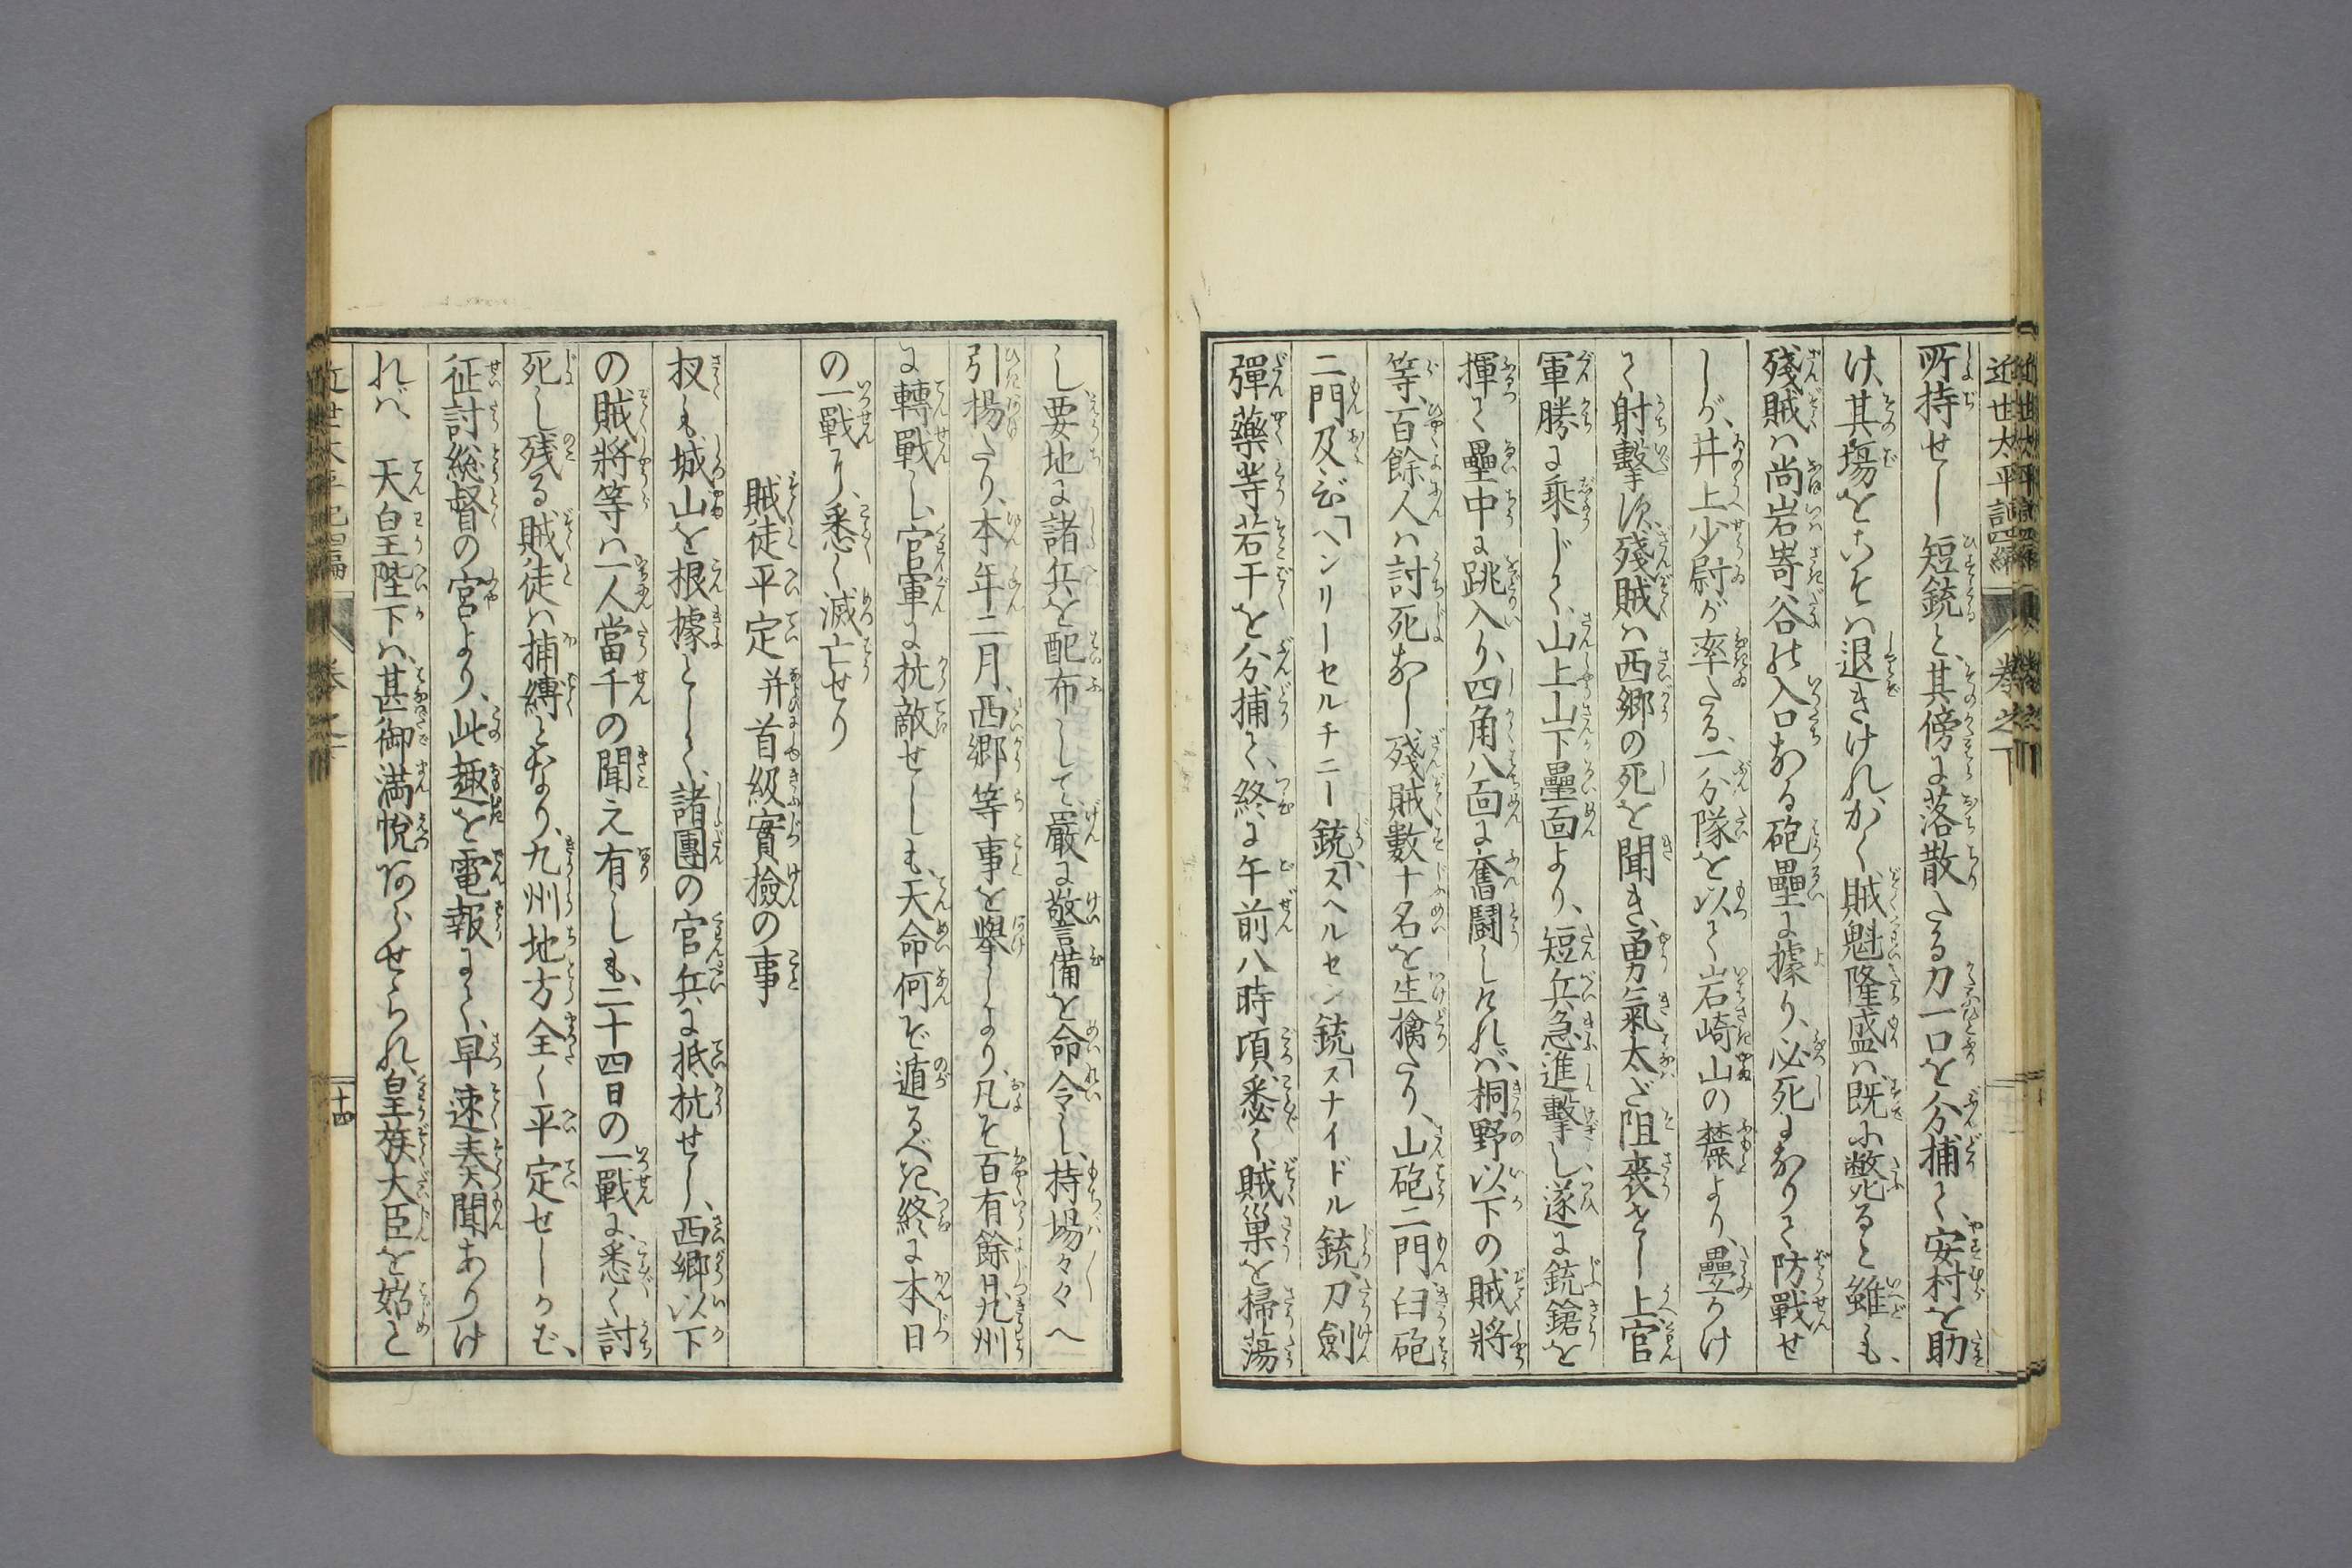 近世太平記四編 巻之下
所持せし短銃と、其傍に落散たる刀一口を分捕て、安村を助
け、其塲をこそハ退きけれ、かく賊魁隆盛ハ既に斃ると雖も、
殘賊ハ尚岩嵜谷の入口なる砲壘に據り、必死になりて防戰せ
しが、井上少尉が率たる、一分隊を以て岩崎山の麓より、壘をかけ
て射擊す、殘賊ハ西郷の死を聞き、勇氣太だ阻喪せし上、官
軍勝に乘じて、山上山下壘面より、短兵急進擊し、遂に銃鎗を
揮て壘中に跳入り、四角八面に奮鬪しけれバ、桐野以下の賊將
等、百餘人ハ討死なし、殘賊數十名を生擒たり、山砲二門臼砲
二門及び「ヘンリーセルチニー銃「スヘルセン銃「スナイドル銃、刀劍
彈藥等若干を分捕て、終に午前八時頃、悉く賊巢を掃蕩
し要地に諸兵を配布して、嚴に警備を命令し、持場々々へ
引揚たり、本年二月、西郷等事を擧しより、凡そ百有餘日、九州
に轉戰し、官軍に抗敵せしも、天命何ぞ遁るべき、終に本日
の一戰にて、悉く滅亡せり
賊徒平定并首級實撿の事
扨も城山を根據として、諸團の官兵に抵抗せし、西郷以下
の賊將等ハ一人當千の聞え有しも、二十四日の一戰に、悉く討
死し残る賊徒ハ捕縛となり、九州地方全く平定せしかバ、
征討総督の宮より、此趣を電報にて、早速奏聞ありけ
れバ、天皇陛下ハ、甚御満悅あらせられ、皇族大臣を始と
近世太平記四編 巻之下 十四